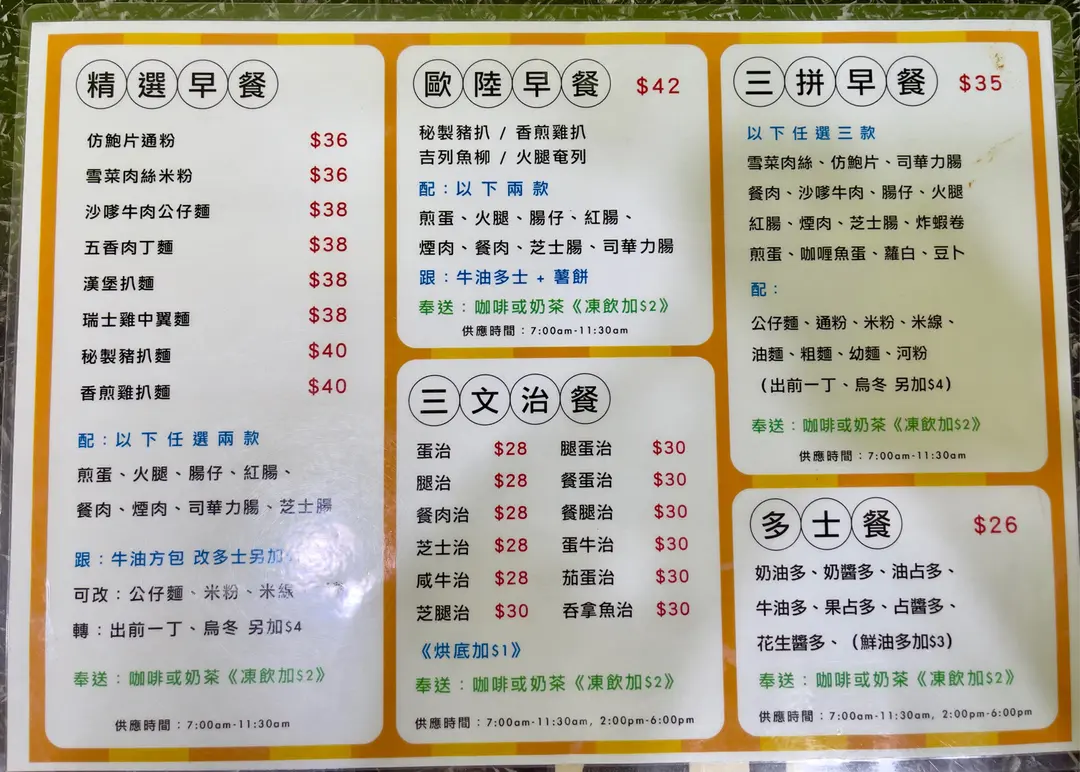 精選早餐
仿鮑片通粉 $36
雪菜肉絲米粉 $36
沙嗲牛肉公仔麵 $38
五香肉丁麵 $38
漢堡扒麵 $38
瑞士雞中翼麵 $38
秘製豬扒麵 $40
香煎雞扒麵 $40
配：以下任選兩款
煎蛋、火腿、腸仔、紅腸、
餐肉、煙肉、司華力腸、芝士腸
跟：牛油方包 改多士另加
可改：公仔麵、米粉、米線
轉：出前一丁、烏冬 另加$4
奉送：咖啡或奶茶《凍飲加$2》
供應時間：7:00am-11:30am
歐陸早餐 $42
秘製豬扒 / 香煎雞扒
吉列魚柳 / 火腿奄列
配：以下兩款
煎蛋、火腿、腸仔、紅腸、
煙肉、餐肉、芝士腸、司華力腸
跟：牛油多士 + 薯餅
奉送：咖啡或奶茶《凍飲加$2》
供應時間：7:00am-11:30am
三文治餐
蛋治 $28 腿蛋治 $30
腿治 $28 餐蛋治 $30
餐肉治 $28 餐腿治 $30
芝士治 $28 蛋牛治 $30
咸牛治 $28 茄蛋治 $30
芝腿治 $30 吞拿魚治 $30
《烘底加$1》
奉送：咖啡或奶茶《凍飲加$2》
供應時間：7:00am-11:30am, 2:00pm-6:00pm
三拼早餐 $35
以下任選三款
雪菜肉絲、仿鮑片、司華力腸
餐肉、沙嗲牛肉、腸仔、火腿
紅腸、煙肉、芝士腸、炸蝦卷
煎蛋、咖喱魚蛋、蘿白、豆卜
配：
公仔麵、通粉、米粉、米線、
油麵、粗麵、幼麵、河粉
（出前一丁、烏冬 另加$4）
奉送：咖啡或奶茶《凍飲加$2》
供應時間：7:00am-11:30am
多士餐 $26
奶油多、奶醬多、油占多、
牛油多、果占多、占醬多、
花生醬多、（鮮油多加$3）
奉送：咖啡或奶茶《凍飲加$2》
供應時間：7:00am-11:30am, 2:00pm-6:00pm